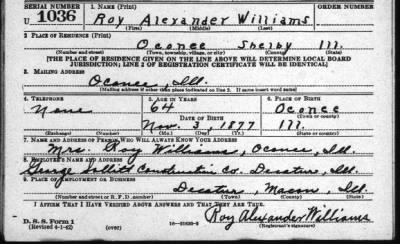 SERIAL NUMBER 1. NAME (Print) ORDER NUMBER
U 1036 Roy Alexander Williams
(First) (Middle) (Last)
2. PLACE OF RESIDENCE (Print)
Oconee Shelby Ill.
(Number and street) (Town, township, village, or city) (County) (State)
[THE PLACE OF RESIDENCE GIVEN ON THE LINE ABOVE WILL DETERMINE LOCAL BOARD
JURISDICTION; LINE 2 OF REGISTRATION CERTIFICATE WILL BE IDENTICAL]
3. MAILING ADDRESS
Oconee, Ill.
[Mailing address if other than place indicated on line 2. If same insert word same]
4. TELEPHONE 5. AGE IN YEARS 6. PLACE OF BIRTH
None 64 Oconee
DATE OF BIRTH (Town or county)
Nov. 3, 1877 Ill.
(Exchange) (Number) (Mo.) (Day) (Yr.) (State or country)
7. NAME AND ADDRESS OF PERSON WHO WILL ALWAYS KNOW YOUR ADDRESS
Mrs. Roy Williams, Oconee, Ill.
8. EMPLOYER'S NAME AND ADDRESS
George Sollitt Construction Co. Decatur, Ill.
9. PLACE OF EMPLOYMENT OR BUSINESS
Decatur, Macon, Ill.
(Number and street or R. F. D. number) (Town) (County) (State)
I AFFIRM THAT I HAVE VERIFIED ABOVE ANSWERS AND THAT THEY ARE TRUE.
D. S. S. Form 1 Roy Alexander Williams
(Revised 4-1-42) (over) (Registrant's signature)